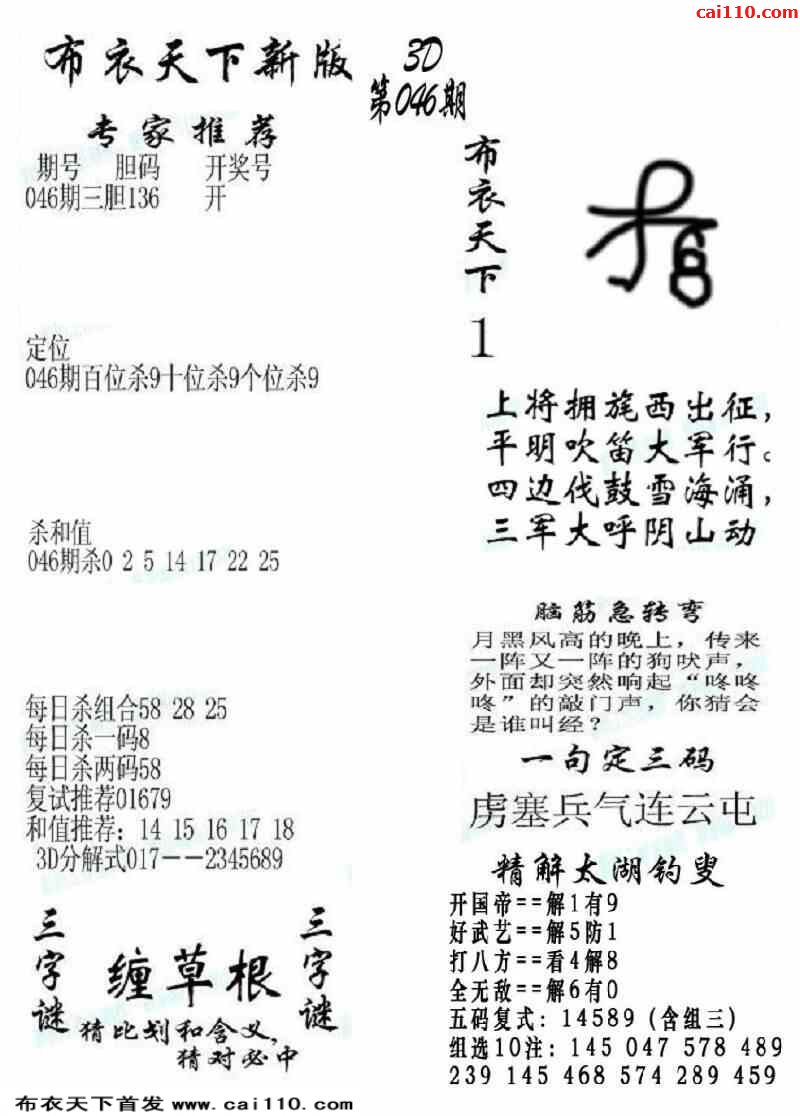 cai110.com
布衣天下新版
3D
第046期
专家推荐
期号 胆码 开奖号
046期三胆136 开
定位
046期百位杀9十位杀9个位杀9
杀和值
046期杀0 2 5 14 17 22 25
每日杀组合58 28 25
每日杀一码8
每日杀两码58
复试推荐01679
和值推荐：14 15 16 17 18
3D分解式017--2345689
三字谜
缠草根
三字谜
猜比划和含义，
猜对必中
布衣天下
1
上将拥旄西出征，
平明吹笛大军行。
四边伐鼓雪海涌，
三军大呼阴山动
脑筋急转弯
月黑风高的晚上，传来
一阵又一阵的狗吠声，
外面却突然响起“咚咚
咚”的敲门声，你猜会
是谁叫经？
一句定三码
虏塞兵气连云屯
精解太湖钓叟
开国帝==解1有9
好武艺==解5防1
打八方==看4解8
全无敌==解6有0
五码复式: 14589 (含组三)
组选10注: 145 047 578 489
239 145 468 574 289 459
布衣天下首发 www.cai110.com